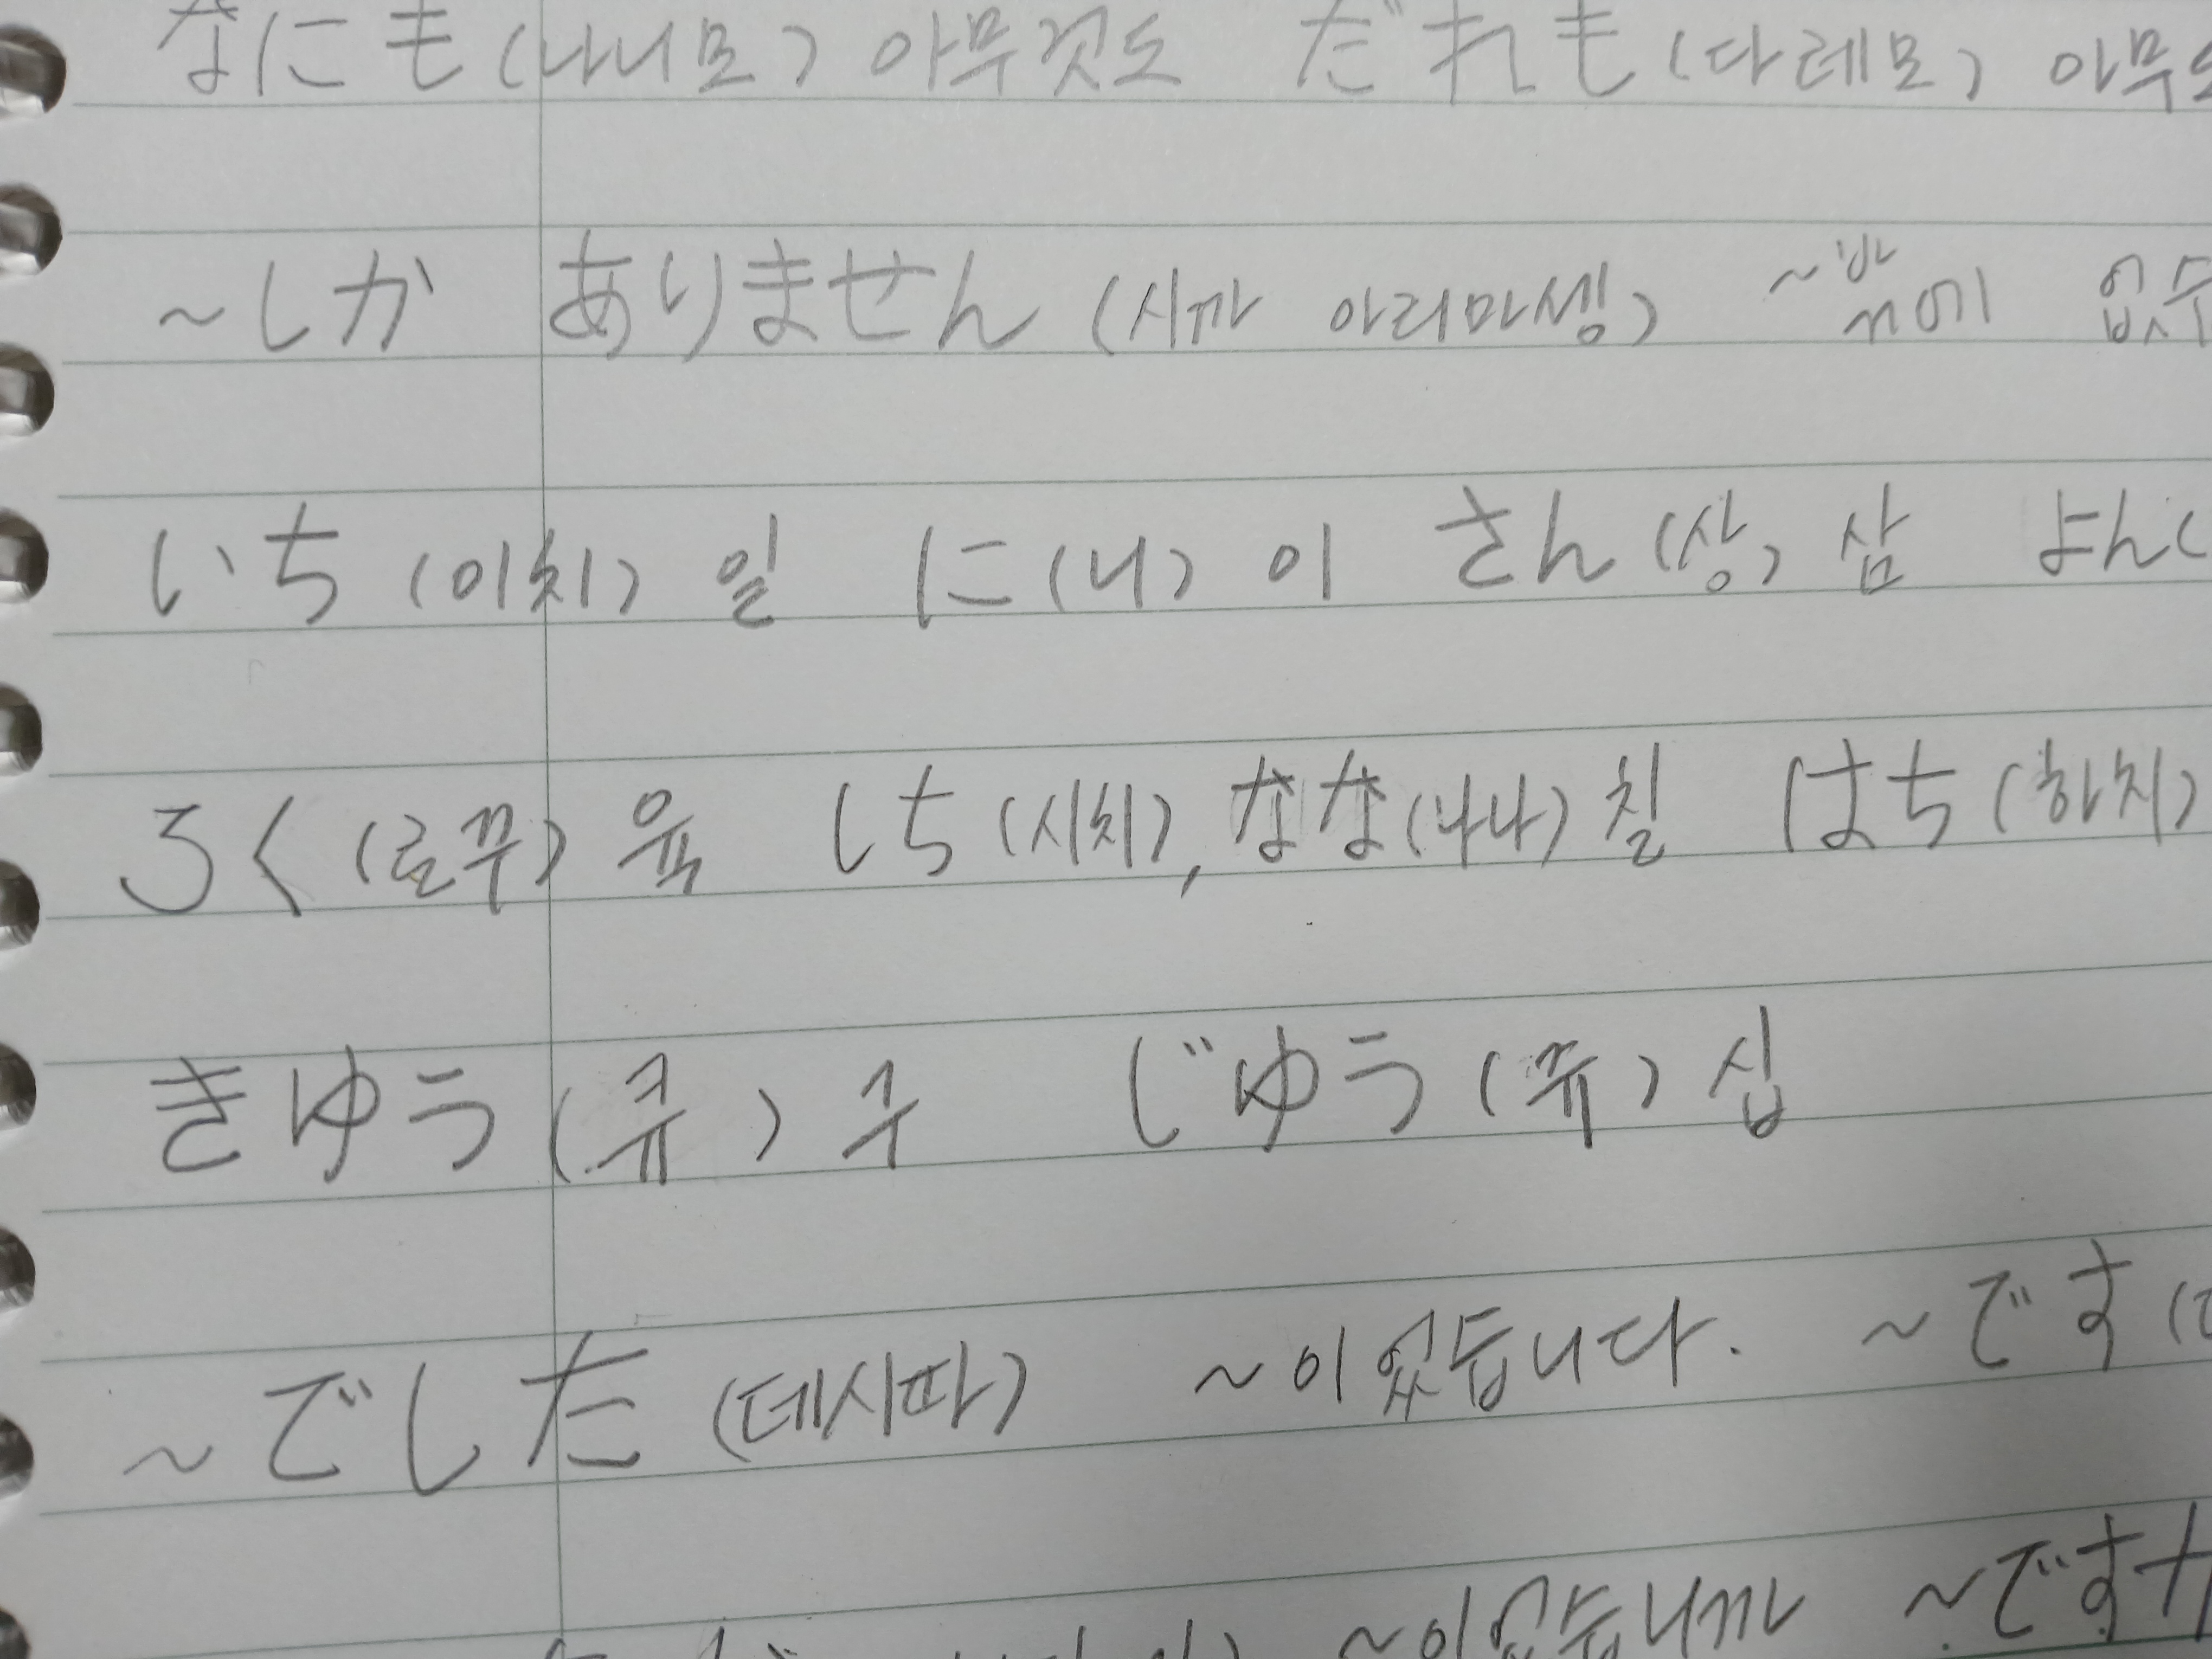 なにも (나니모) 아무것도 だれも (다레모)
~しか ありません (시까 아리마셍) ~밖에
いち (이치) 일 に (니) 이 さん (상) 삼 よん (
ろく (로꾸) 육 しち (시치), なな (나나) 칠 はち (하치)
きゅう (큐) 구 じゅう (쥬) 십
~でした (데시따) ~이었습니다. ~です (
~이었습니까 ~ですか